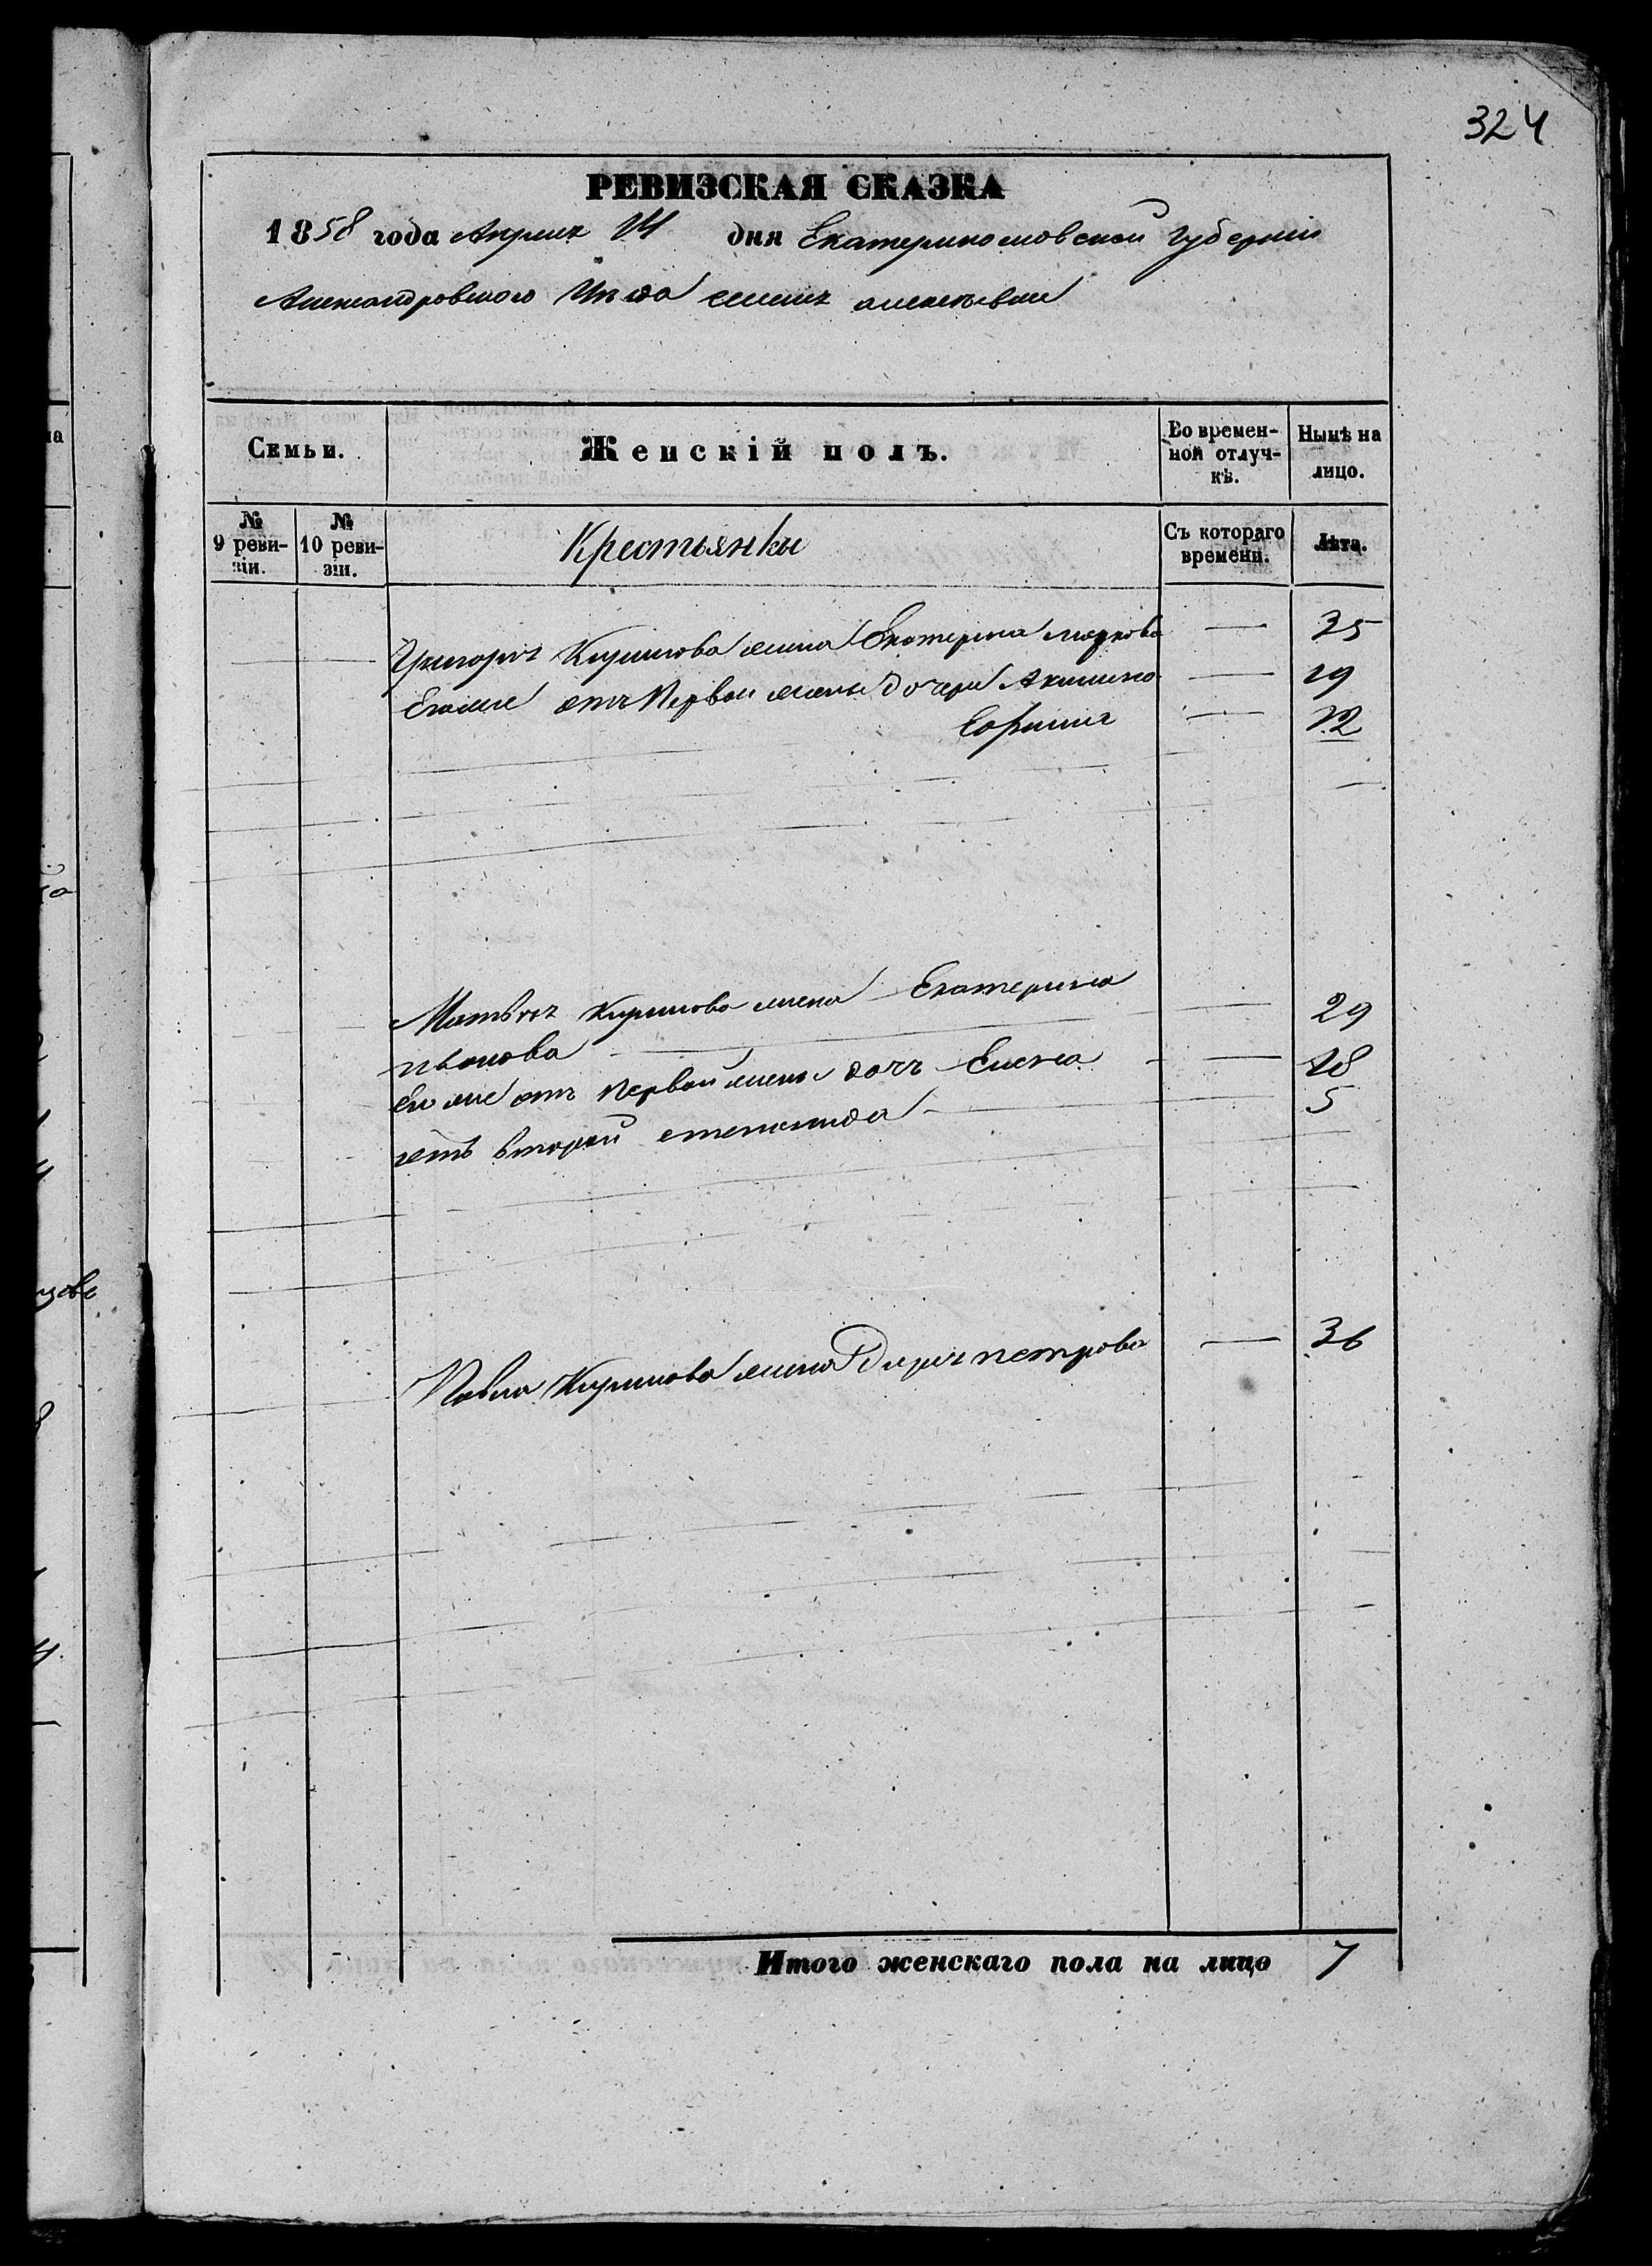 324
РЕВИЗСКАЯ СКАЗКА
1858 года Апреля дня Екатеринославской губернии
Александровского Уезда
Семьи.
Женскій полъ.
Во времен-
ной отлуч-
кѣ.
Нынѣ на
лицо.
№
9 реви-
зіи.
№
10 реви-
зіи.
Крестьянки
Съ котораго
времени.
Лѣта.
Григория Кирилова жена Екатерина маркова 35
Его же отъ первой жены дочери Акилина 19
Ефимия
Матвея Кирилова жена Екатерина
иванова 29
Его же отъ первой жены дочь Елена 18
отъ второй степанида 5
Павла Кирилова жена Дарья петрова 36
Итого женскаго пола на лицо 7